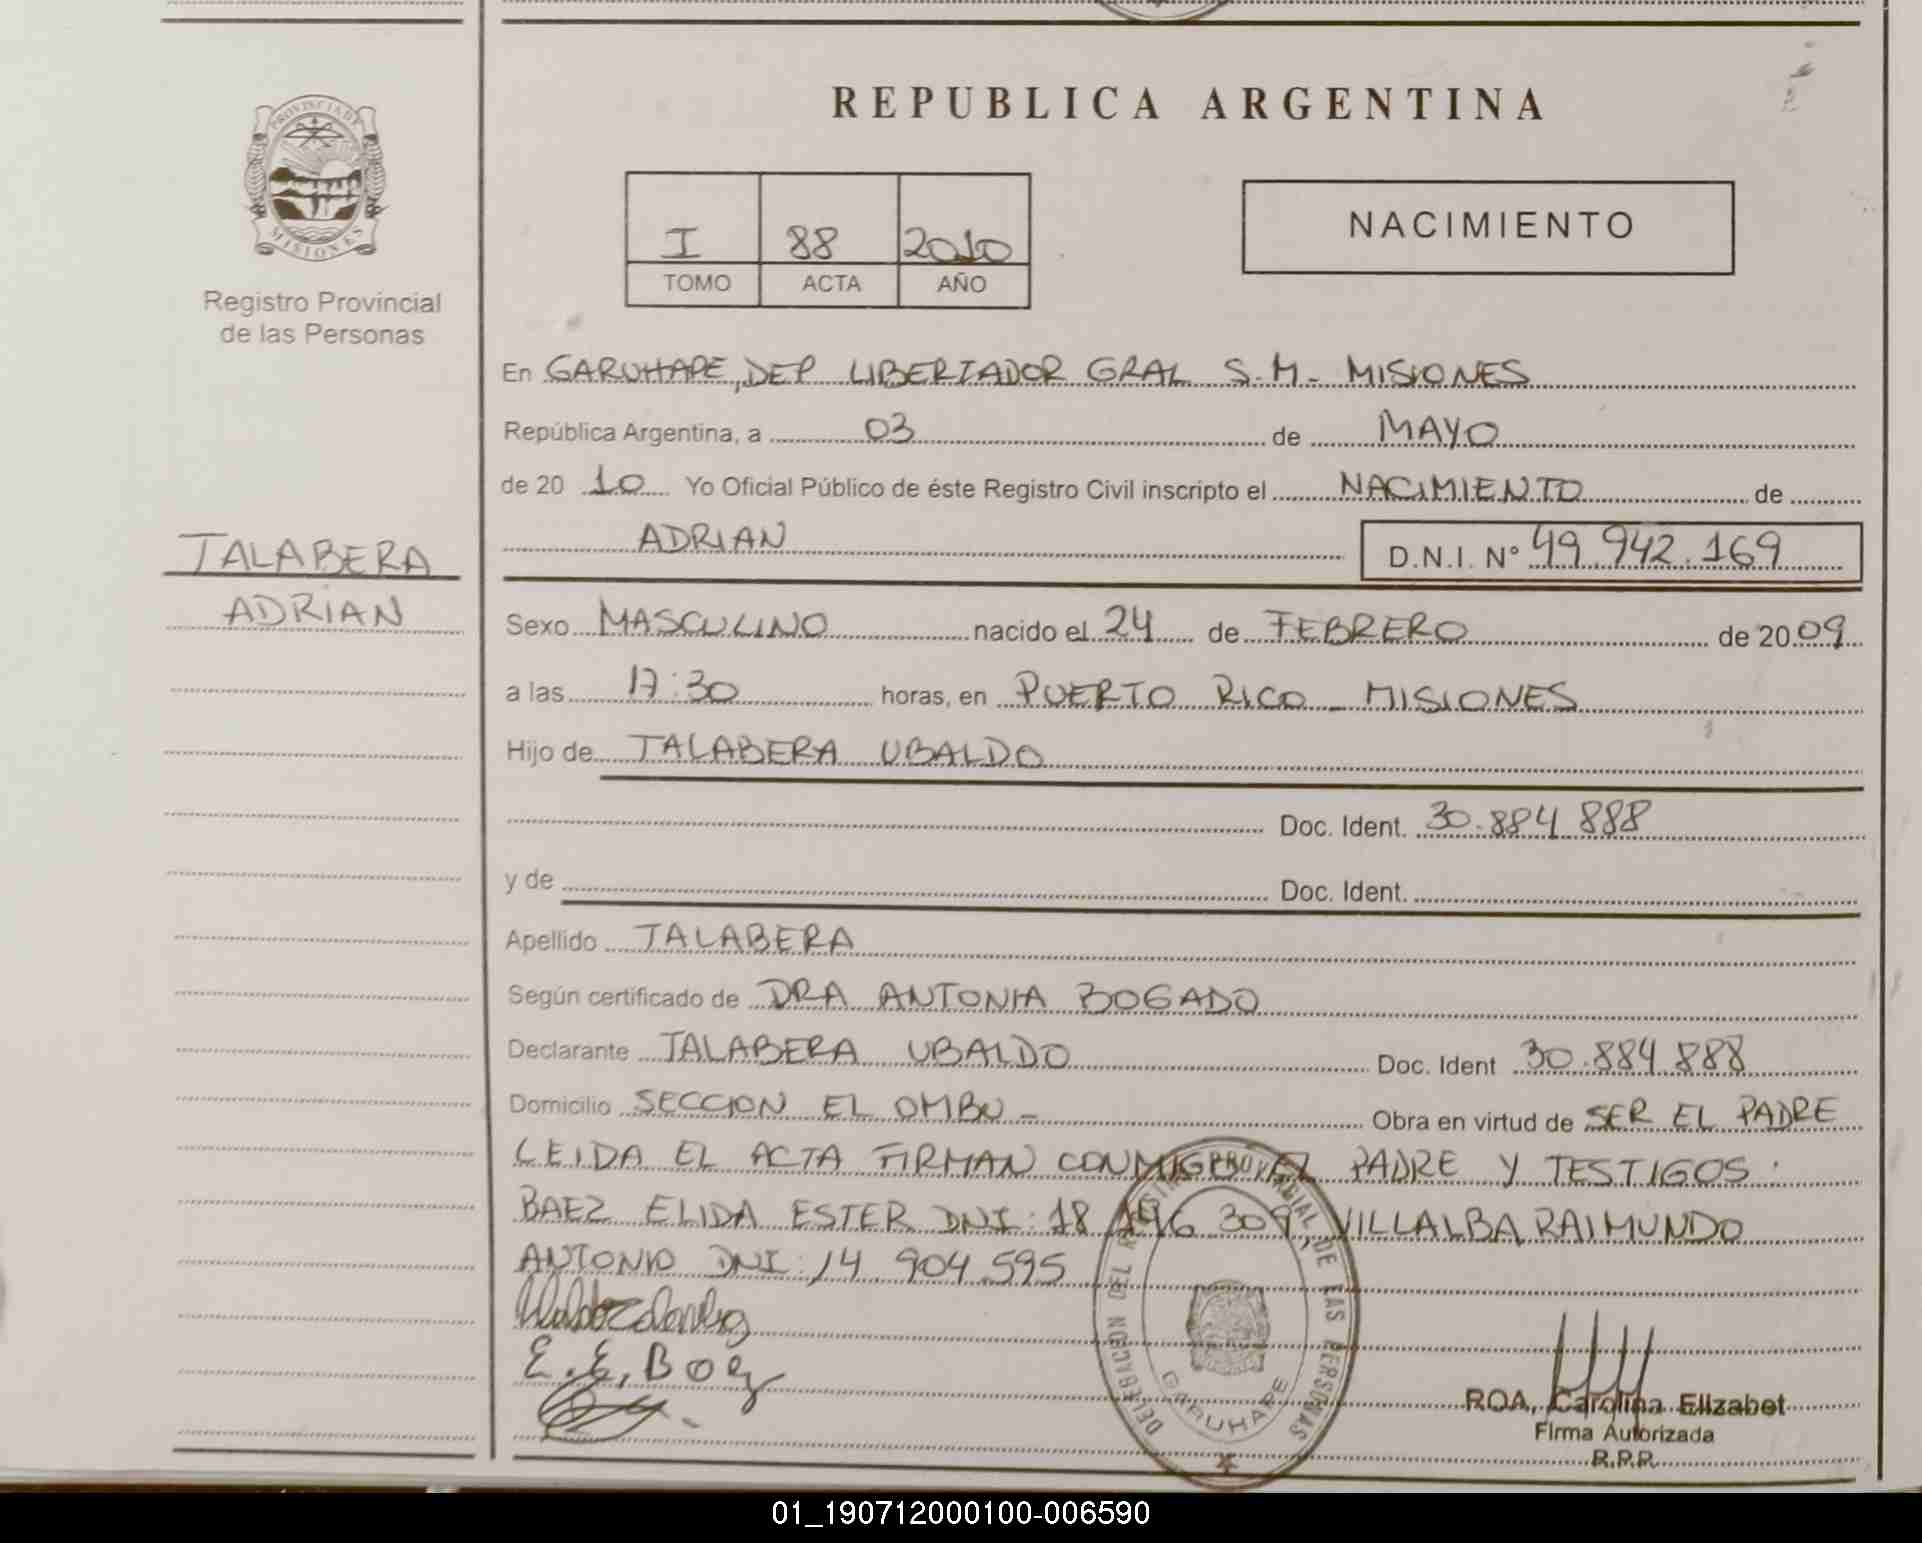 REPUBLICA ARGENTINA
PROVINCIA DE
MISIONES
Registro Provincial
de las Personas
I 88 2010
TOMO ACTA AÑO
NACIMIENTO
En GARUHAPE, DEP LIBERTADOR GRAL S.M- MISIONES
República Argentina, a 03 de MAYO
de 20 10 Yo Oficial Público de éste Registro Civil inscripto el NACIMIENTO de
ADRIAN D.N.I. N° 49.942.169
TALABERA
ADRIAN
Sexo MASCULINO nacido el 24 de FEBRERO de 20 09
a las 17:30 horas, en PUERTO RICO - MISIONES
Hijo de TALABERA UBALDO
Doc. Ident. 30.884.888
y de Doc. Ident.
Apellido TALABERA
Según certificado de DRA ANTONIA BOGADO
Declarante TALABERA UBALDO Doc. Ident 30.884.888
Domicilio SECCION EL OMBU - Obra en virtud de SER EL PADRE
LEIDA EL ACTA FIRMAN CONMIGO EL PADRE Y TESTIGOS:
BAEZ ELIDA ESTER DNI: 18 196 309, VILLALBA RAIMUNDO
ANTONIO DNI: 14.904.595
E.E. Boez
DELEGACION DEL REGISTRO PROVINCIAL DE LAS PERSONAS
GARUHAPE
ROA, Carolina Elizabet
Firma Autorizada
R.P.P.
01_190712000100-006590